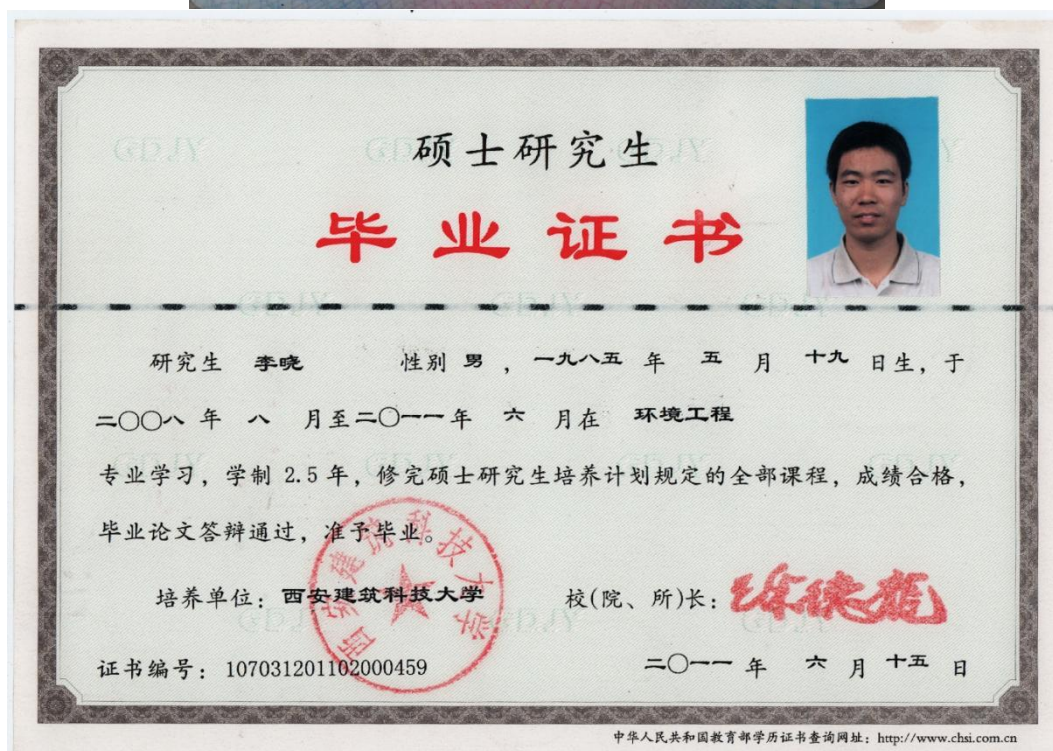 硕士研究生
毕业证书
研究生 李晓 性别 男 ， 一九八五 年 五 月 十九 日生，于
二〇〇八 年 八 月至二〇一一年 六 月在 环境工程
专业学习，学制 2.5 年，修完硕士研究生培养计划规定的全部课程，成绩合格，
毕业论文答辩通过，准予毕业。
培养单位：西安建筑科技大学 校(院、所)长：徐德龙
西安建筑科技大学
证书编号：107031201102000459 二〇一一 年 六 月 十五 日
中华人民共和国教育部学历证书查询网址：http://www.chsi.com.cn